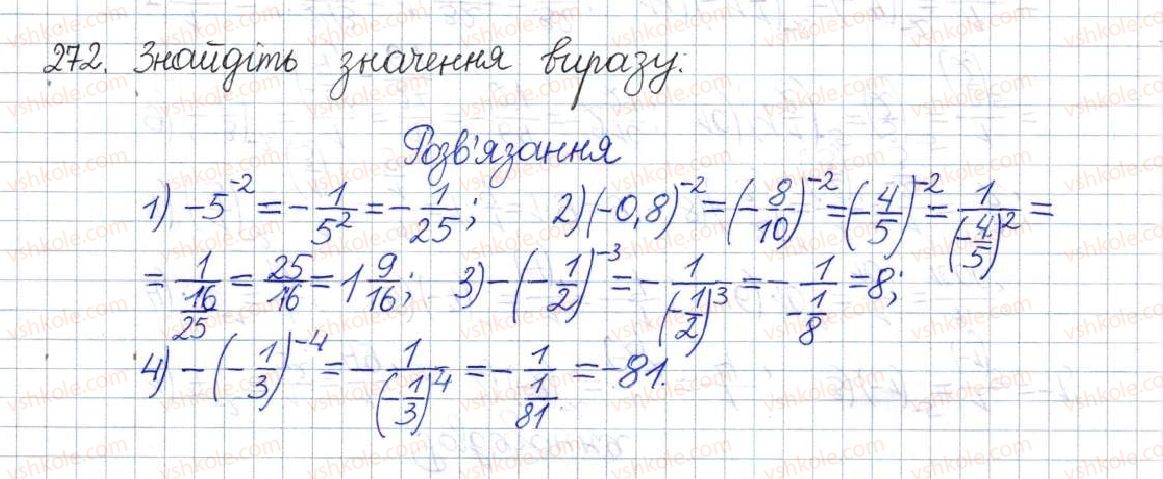 272. Знайдіть значення виразу:
Розв'язання
1) -5^{-2} = -\frac{1}{5^2} = -\frac{1}{25}; 2) (-0,8)^{-2} = (-\frac{8}{10})^{-2} = (-\frac{4}{5})^{-2} = \frac{1}{(-\frac{4}{5})^2} =
= \frac{1}{\frac{16}{25}} = \frac{25}{16} = 1\frac{9}{16}; 3) -(-\frac{1}{2})^{-3} = -\frac{1}{(-\frac{1}{2})^3} = -\frac{1}{-\frac{1}{8}} = 8;
4) -(-\frac{1}{3})^{-4} = -\frac{1}{(-\frac{1}{3})^4} = -\frac{1}{\frac{1}{81}} = -81.